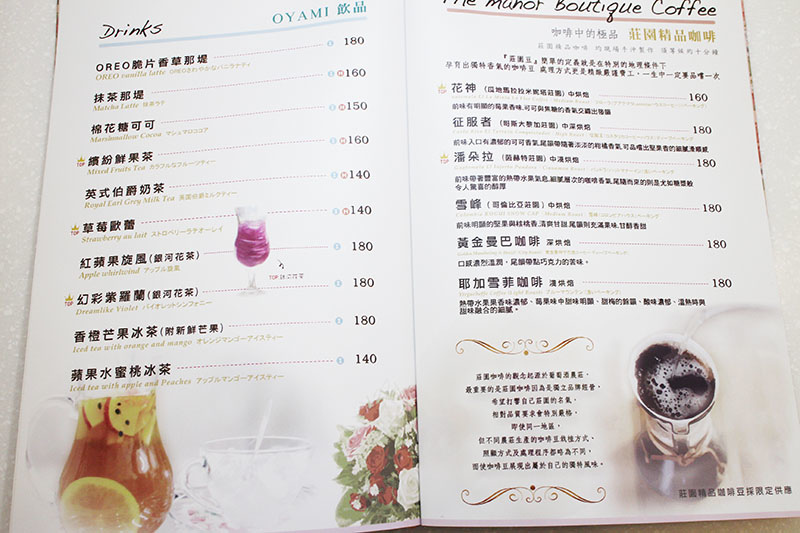 Drinks
OYAMI 飲品
OREO脆片香草那堤 180
OREO vanilla latte OREOさわやかなバニラナティ
抹茶那堤 H160
Matcha Latte 抹茶ラテ
棉花糖可可 H150
Marshmallow Cocoa マシュマロココア
TOP 繽紛鮮果茶 H160
Mixed Fruits Tea カラフルなフルーツティー
英式伯爵奶茶 H140
Royal Earl Grey Milk Tea 英国伯爵ミルクティー
TOP 草莓歐蕾 H140
Strawberry au lait ストロベリーラテオーレイ
紅蘋果旋風(銀河花茶) 180
Apple whirlwind アップル旋風
TOP 幻彩紫羅蘭(銀河花茶) 180
Dreamlike Violet バイオレットシンフォニー
香橙芒果冰茶(附新鮮芒果) 180
Iced tea with orange and mango オレンジマンゴーアイスティー
蘋果水蜜桃冰茶 140
Iced tea with apple and Peaches アップルマンゴーアイスティー
The manor Boutique Coffee
咖啡中的極品 莊園精品咖啡
莊園精品咖啡 均現場手沖製作 須等候約十分鐘
『莊園豆』簡單的定義就是在特別的地理條件下
孕育出獨特香氣的咖啡豆 處理方式更是精緻嚴謹費工,一生中一定要品嚐一次
花神 160
前味有明顯的莓果香味,可可與焦糖的香氣交織出後韻
征服者 (哥斯大黎加莊園) 中深烘焙 180
前味入口有濃郁的可可香氣,尾韻帶隨著淡淡的柑橘香氣,可品嚐出堅果香的細膩滑順感
TOP 潘朵拉 180
前味帶著豐富的熱帶水果氣息,細膩層次的咖啡香氣,尾隨而來的則是尤如糖漿般
令人驚喜的醇厚
雪峰 (哥倫比亞莊園) 中烘焙 180
前味明顯的堅果與核桃香,清爽甘甜,尾韻則充滿果味,甘醇香甜
黃金曼巴咖啡 深烘焙 180
口感濃烈溫潤,尾韻帶點巧克力的苦味。
耶加雪菲咖啡 淺烘焙 180
熱帶水果果香味濃郁、莓果味中甜味明顯、甜梅的餘韻、酸味濃郁、溫熱時與
甜味融合的細膩。
莊園咖啡的觀念起源於葡萄酒農莊,
最重要的是莊園咖啡因為是獨立品牌經營,
希望打響自己莊園的名氣,
相對品質要求會特別嚴格,
即使同一地區,
但不同農莊生產的咖啡豆栽植方式,
照顧方式及處理程序都略為不同,
而使咖啡豆展現出屬於自己的獨特風味。
莊園精品咖啡豆採限定供應